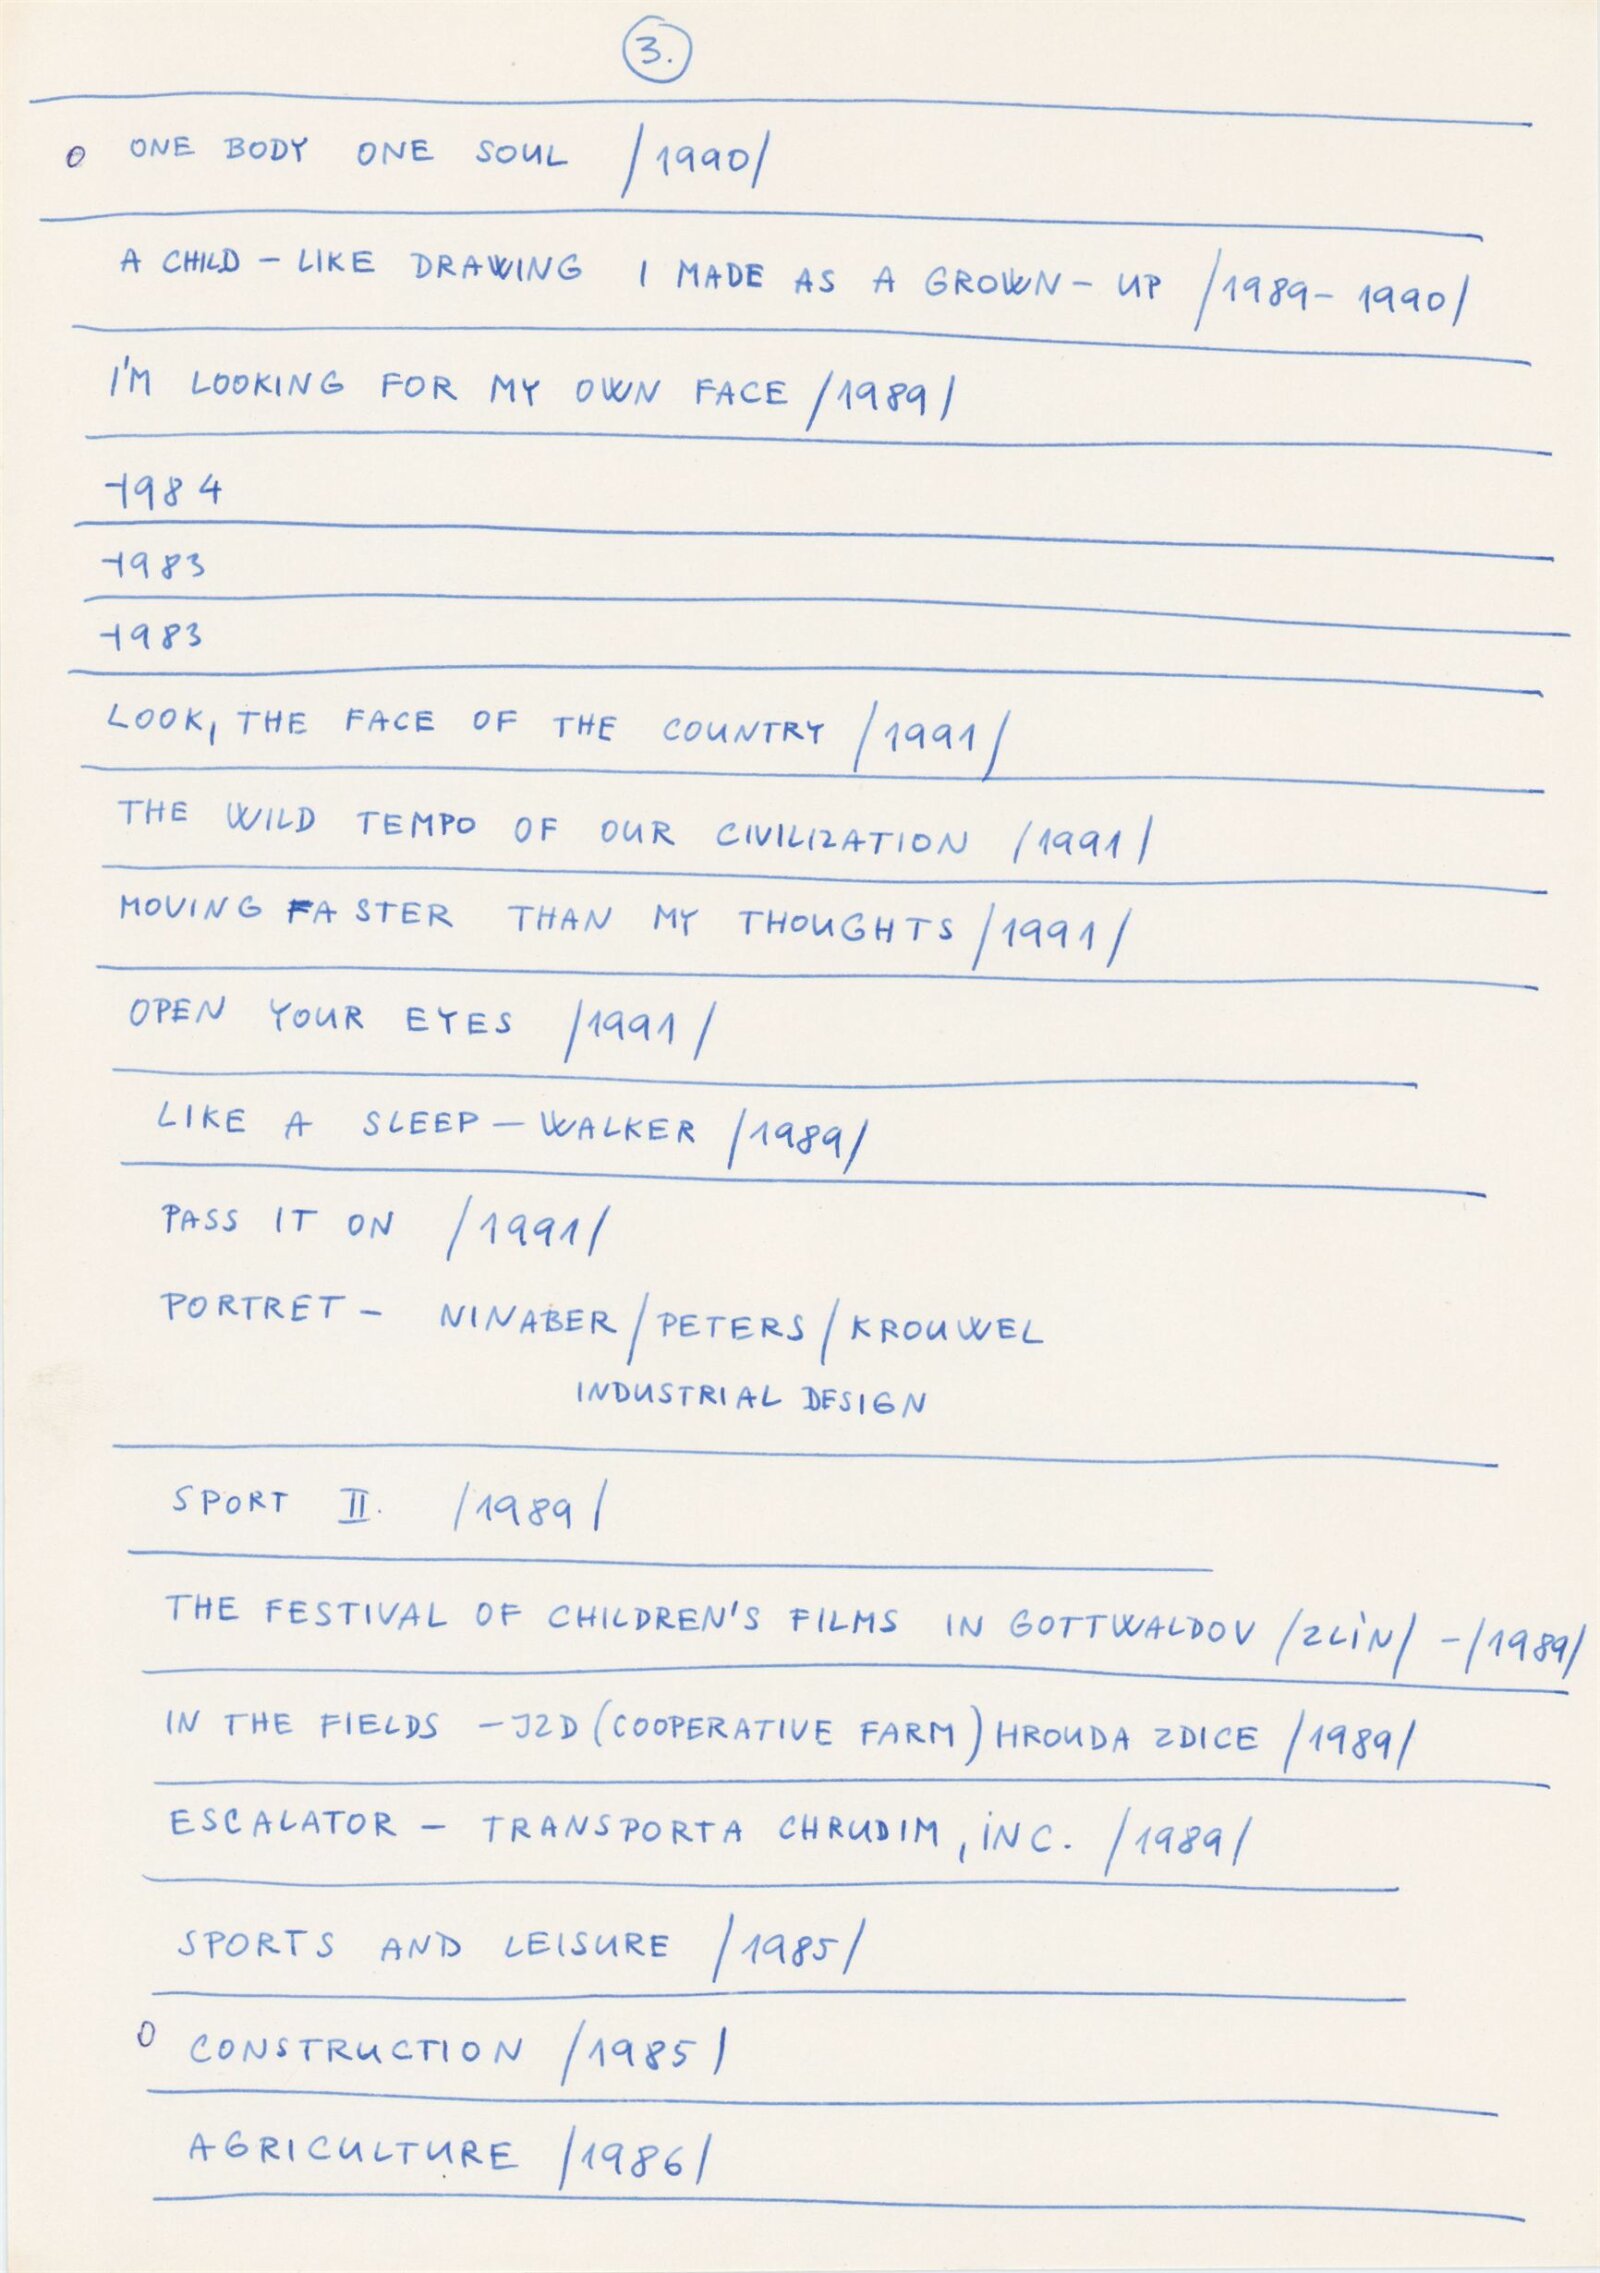 3.
O ONE BODY ONE SOUL /1990/
A CHILD - LIKE DRAWING I MADE AS A GROWN - UP /1989 - 1990/
I'M LOOKING FOR MY OWN FACE /1989/
1984
1983
1983
LOOK, THE FACE OF THE COUNTRY /1991/
THE WILD TEMPO OF OUR CIVILIZATION /1991/
MOVING FASTER THAN MY THOUGHTS /1991/
OPEN YOUR EYES /1991/
LIKE A SLEEP - WALKER /1989/
PASS IT ON /1991/
PORTRET - NINABER/PETERS/KROUWEL
INDUSTRIAL DESIGN
SPORT II. /1989/
THE FESTIVAL OF CHILDREN'S FILMS IN GOTTWALDOV /ZLÍN/ - /1989/
IN THE FIELDS - JZD (COOPERATIVE FARM) HROUDA ZDICE /1989/
ESCALATOR - TRANSPORTA CHRUDIM, INC. /1989/
SPORTS AND LEISURE /1985/
O CONSTRUCTION /1985/
AGRICULTURE /1986/